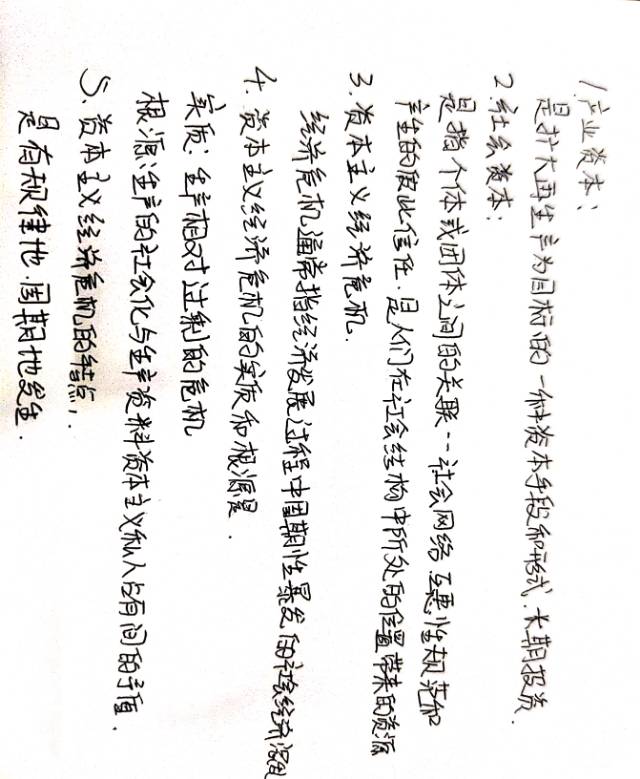 1.产业资本：
是扩大再生产为目标的一种资本手段和形式.长期投资.
2.社会资本：
是指个体或团体之间的关联--社会网络 互惠性规范和
产生的彼此信任.是人们在社会结构中所处的位置带来的资源
3.资本主义经济危机.
经济危机通常指经济发展过程中周期性爆发的社会经济混乱
4.资本主义经济危机的实质和根源是.
实质：生产相对过剩的危机
根源：生产的社会化与生产资料资本主义私人占有间的矛盾.
5.资本主义经济危机的特点.
是有规律地.周期地发生.